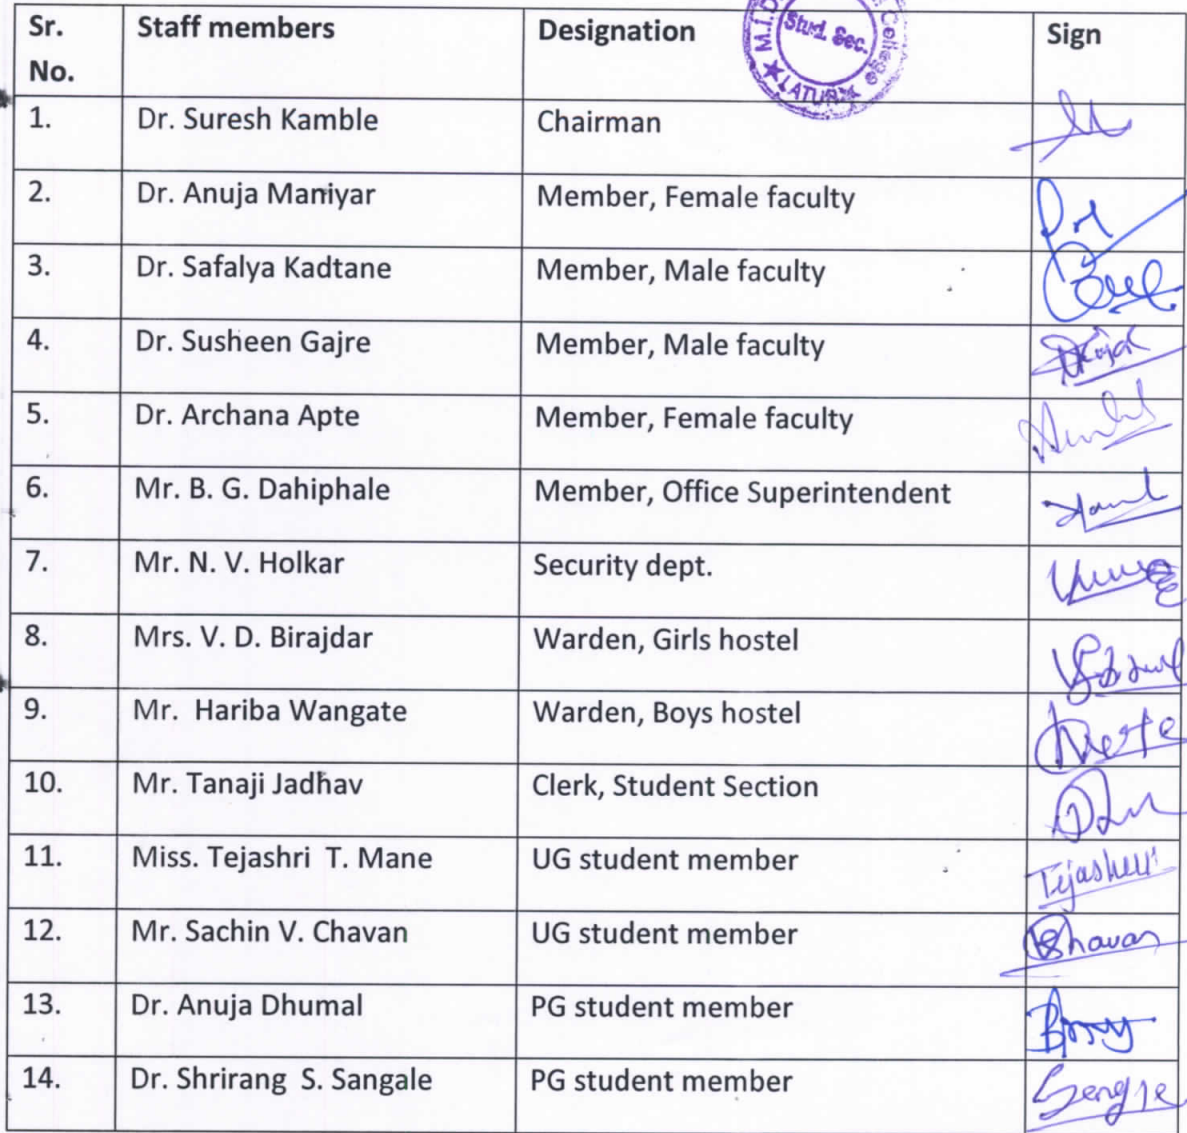 Sr. No. Staff members Designation Sign
M.I.D College
Stud. Sec.
LATUR
1. Dr. Suresh Kamble Chairman
2. Dr. Anuja Maniyar Member, Female faculty
3. Dr. Safalya Kadtane Member, Male faculty
4. Dr. Susheen Gajre Member, Male faculty
5. Dr. Archana Apte Member, Female faculty
6. Mr. B. G. Dahiphale Member, Office Superintendent
7. Mr. N. V. Holkar Security dept.
8. Mrs. V. D. Birajdar Warden, Girls hostel
9. Mr. Hariba Wangate Warden, Boys hostel
10. Mr. Tanaji Jadhav Clerk, Student Section
11. Miss. Tejashri T. Mane UG student member
12. Mr. Sachin V. Chavan UG student member
13. Dr. Anuja Dhumal PG student member
14. Dr. Shrirang S. Sangale PG student member